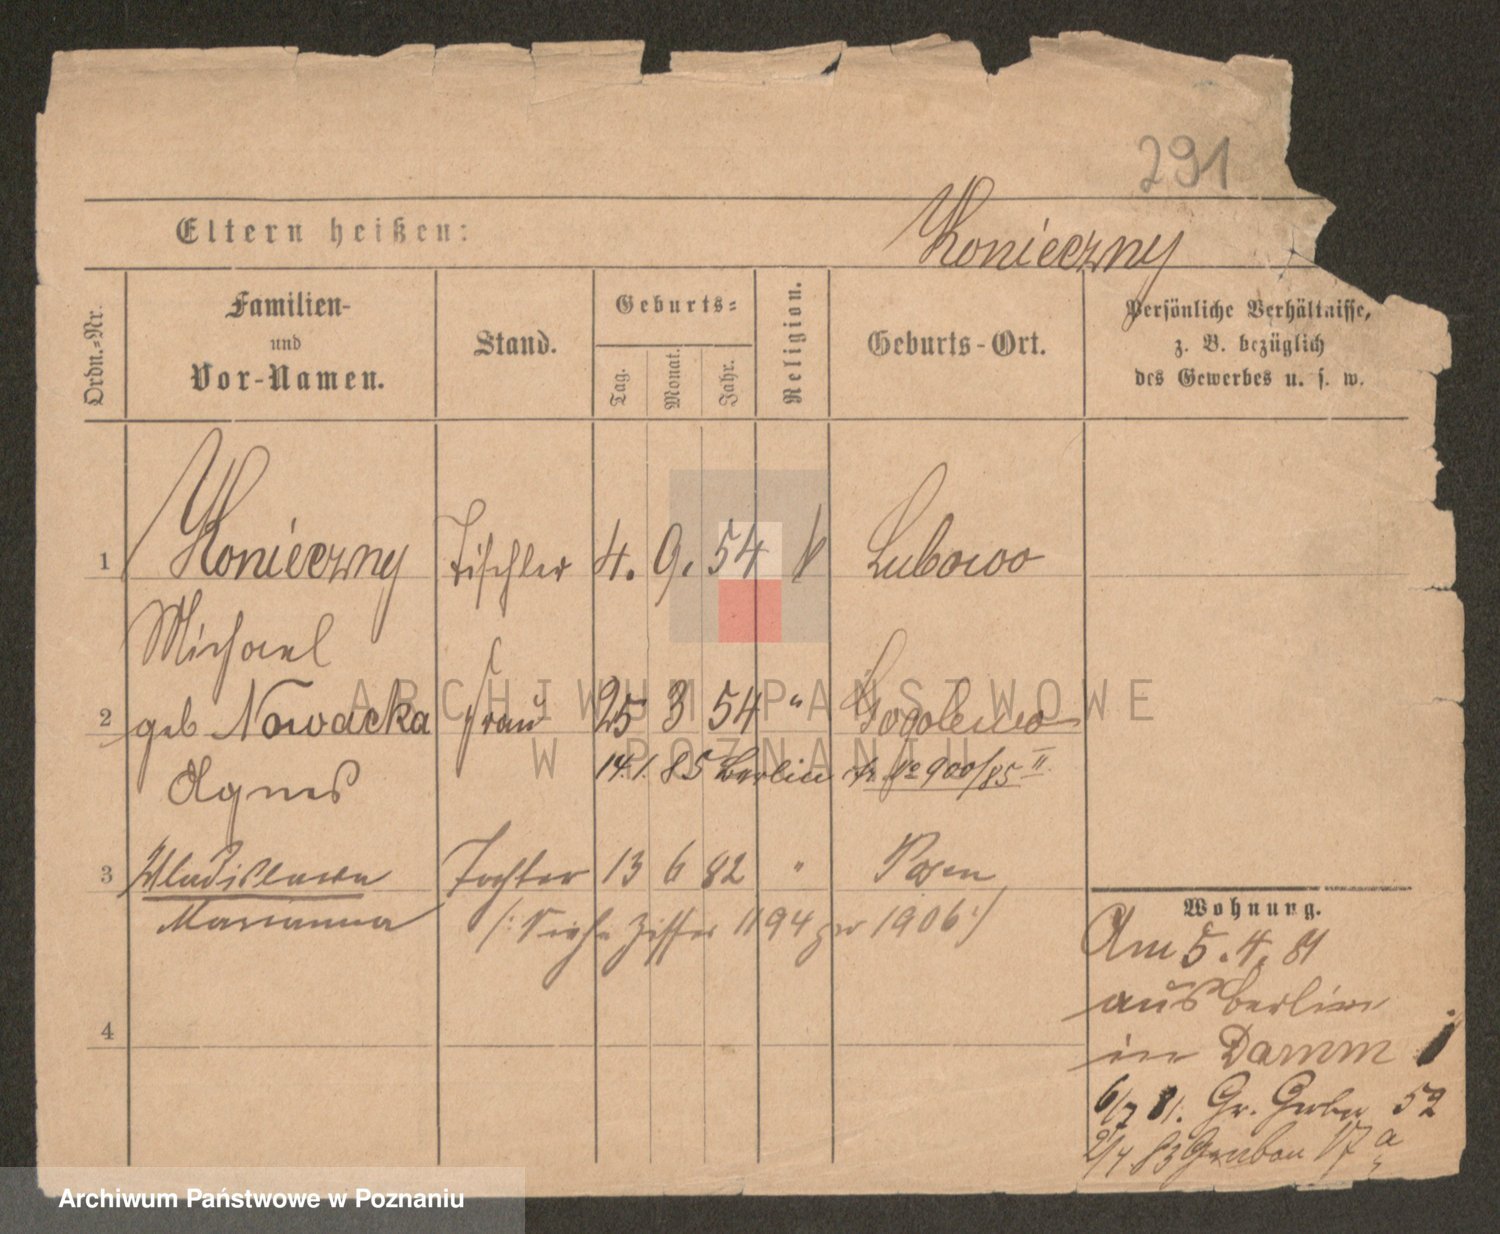 291
Eltern heißen:
Konieczny
Ordn.-Nr.
Familien-
und
Vor-Namen.
Stand.
Geburts-
Tag.
Monat.
Jahr.
Religion.
Geburts-Ort.
Persönliche Verhältnisse,
z. B. bezüglich
des Gewerbes u. s. w.
1 Konieczny Tischler 4. 9. 54 k Lubowo
Michael
2 geb Nowacka Frau 25 3 54 " Gogolewo
14.1. 85 Berlin No 900/85 II
Agnes
3 Wladislawa Tochter 13 6 82 " Posen
Marianna (: Siehe Ziffer 1194 pro 1906 :)
4
Wohnung.
Am 5. 4. 81
aus Berlin
in Damm 1
6/7 81. Gr. Gerber 52
2/4 83 Graben 17 a
ARCHIWUM PAŃSTWOWE
W POZNANIU
Archiwum Państwowe w Poznaniu